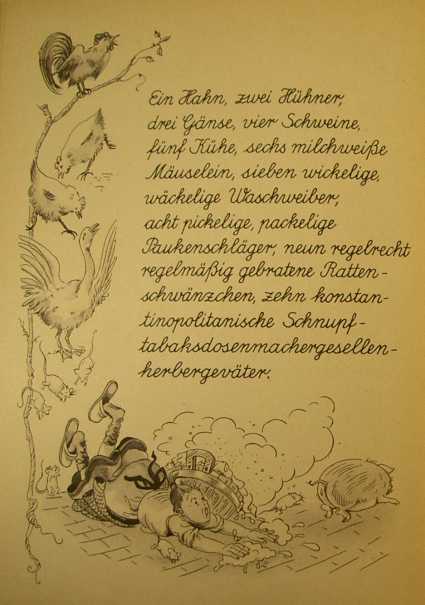 Ein Hahn, zwei Hühner,
drei Gänse, vier Schweine,
fünf Kühe, sechs milchweiße
Mäuselein, sieben wickelige,
wäckelige Waschweiber,
acht pickelige, packelige
Paukenschläger, neun regelrecht
regelmäßig gebratene Ratten-
schwänzchen, zehn konstan-
tinopolitanische Schnupf-
tabaksdosenmachergesellen-
herbergeväter.